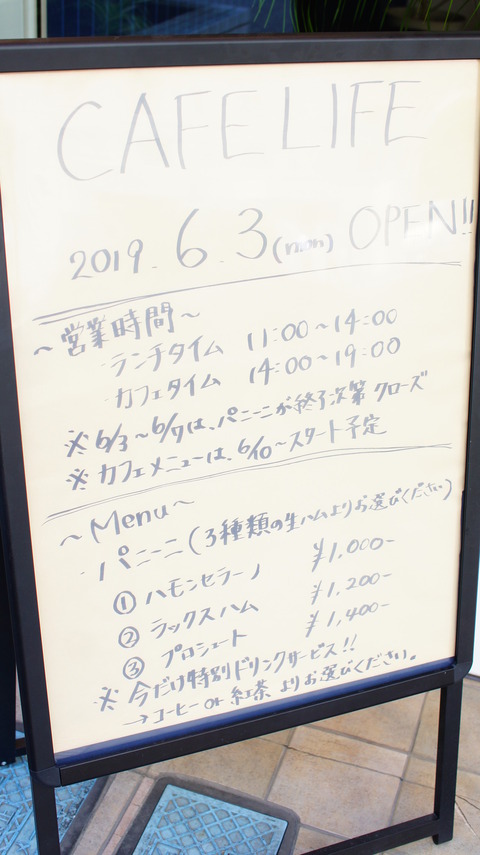 CAFE LIFE
2019.6.3(mon) OPEN!!
～営業時間～
・ランチタイム 11:00～14:00
・カフェタイム 14:00～19:00
※6/3～6/7は、パニーニが終了次第 クローズ
※カフェメニューは、6/10～スタート予定
～Menu～
・パニーニ(3種類の生ハムよりお選びください)
① ハモンセラーノ ¥1,000-
② ラックスハム ¥1,200-
③ プロシュート ¥1,400-
※今だけ特別ドリンクサービス!!
→コーヒー or 紅茶 よりお選びください。